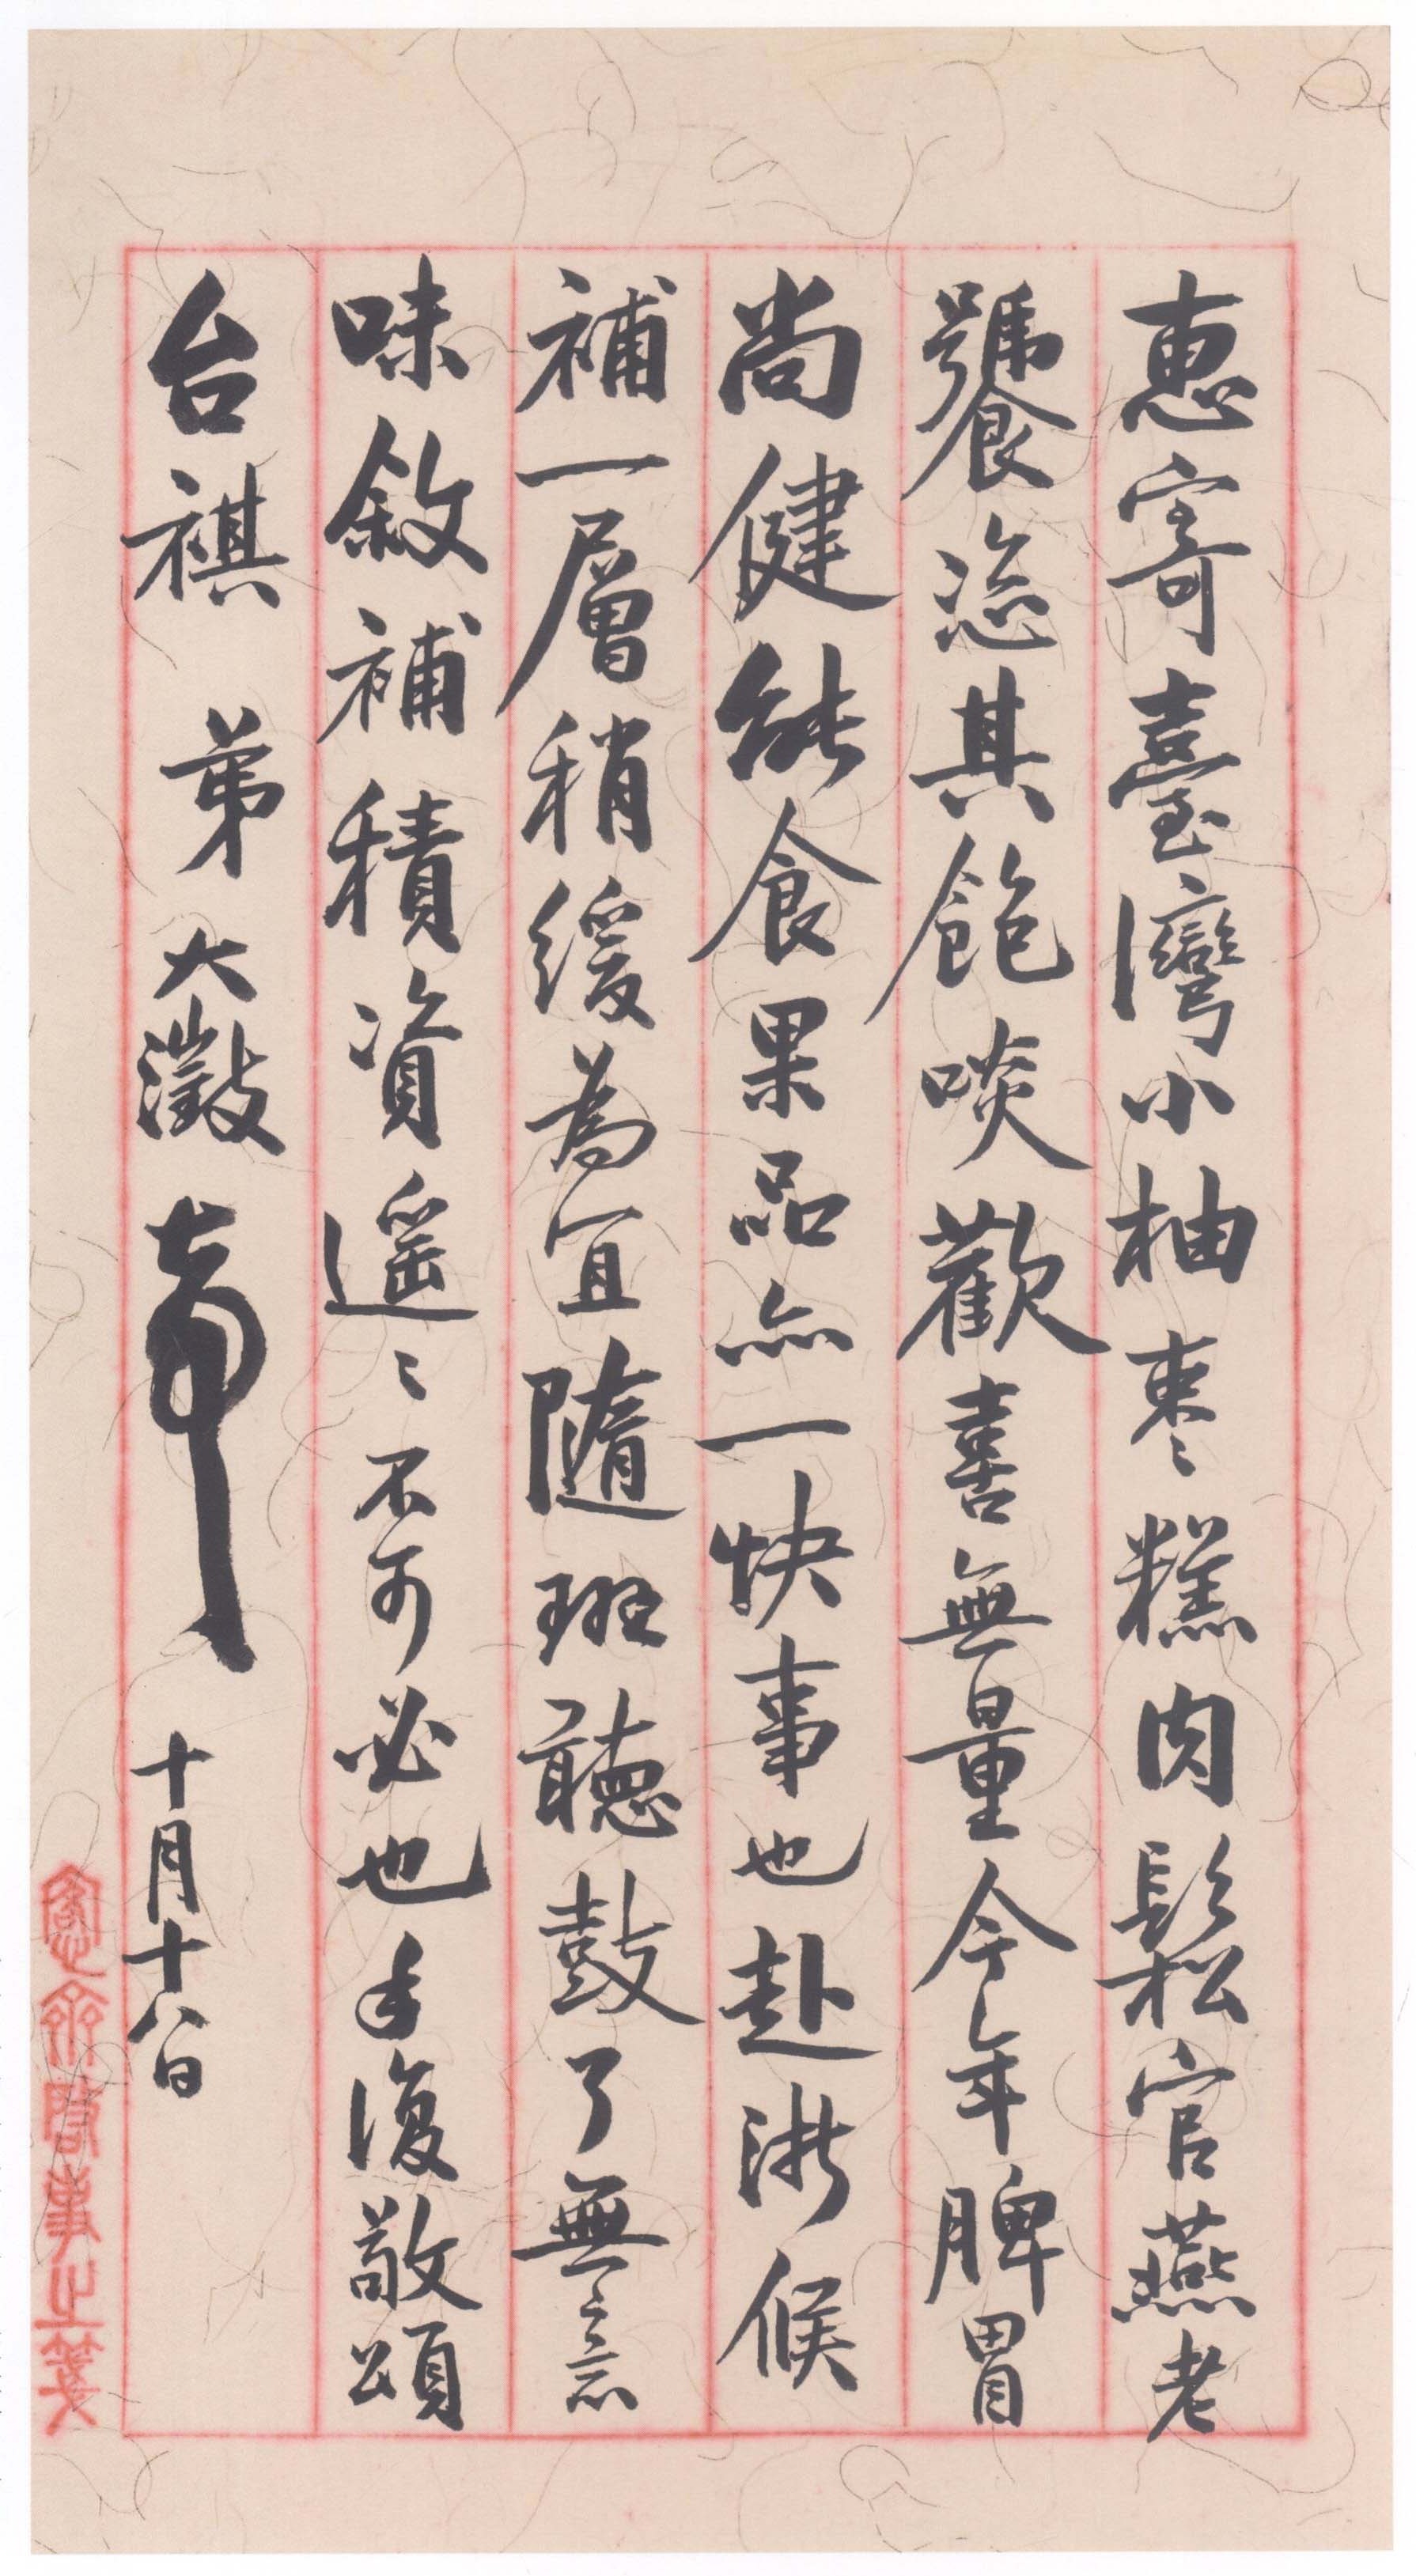 惠寄臺灣小柚枣糕肉鬆官燕老
饕恣其飽啖歡喜無量今年脾胃
尚健能食果品亦一快事也赴浙候
補一層稍緩為宜隨班聽鼓了無意
味敘補積資遥〻不可必也手復敬頌
台祺 弟大澂頓首 十月十八日
愙齋啟事之箋